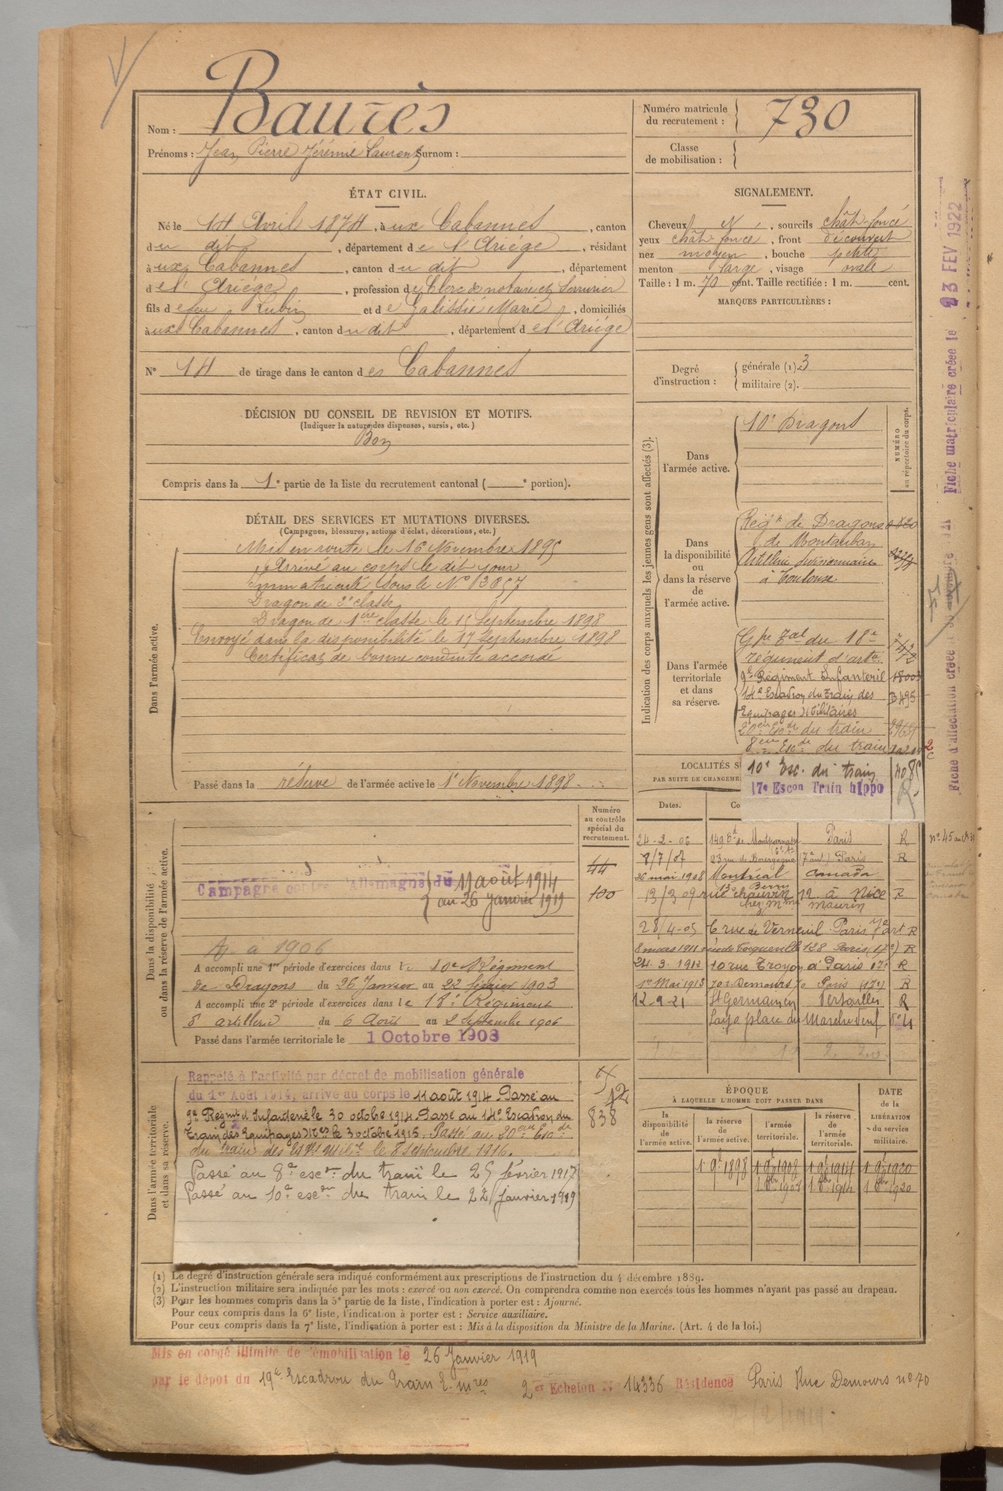 Nom : Baurès
Prénoms : Jean Pierre Jérémie Laurent Surnom :
Numéro matricule du recrutement : 730
Classe de mobilisation :
ÉTAT CIVIL.
Né le 14 Avril 1874, à ux Cabannes, canton
du dit, département de l'Ariège, résidant
à ux Cabannes, canton du dit, département
de l'Ariège, profession de Clerc de notaire et Serrurier
fils de feu Rubin et de Galibbié Marie, domiciliés
à ux Cabannes, canton du dit, département de l'Ariège
N° 14 de tirage dans le canton des Cabannes
SIGNALEMENT.
Cheveux N, sourcils chât foncé
yeux chât foncé, front découvert
nez moyen, bouche petite
menton large, visage ovale
Taille : 1 m. 70 cent. Taille rectifiée : 1 m. cent.
MARQUES PARTICULIÈRES :
Degré d'instruction : générale (1) 3
militaire (2).
DÉCISION DU CONSEIL DE REVISION ET MOTIFS.
(Indiquer la nature des dispenses, sursis, etc.)
Bon
Compris dans la 1e partie de la liste du recrutement cantonal ( e portion).
DÉTAIL DES SERVICES ET MUTATIONS DIVERSES.
(Campagnes, blessures, actions d'éclat, décorations, etc.)
Dans l'armée active.
Mis en route le 16 Novembre 1895
Arrivé au corps le dit jour
Immatriculé sous le N° 13057
Dragon de 2e classe
Dragon de 1ère classe le 15 Septembre 1898
Envoyé dans la disponibilité le 17 Septembre 1898
Certificat de bonne conduite accordé
Passé dans la réserve de l'armée active le 1er Novembre 1898
Indication des corps auxquels les jeunes gens sont affectés (3).
NUMÉRO au répertoire du corps.
Dans l'armée active.
10e Dragons
Dans la disponibilité ou dans la réserve de l'armée active.
Régt de Dragons
de Montauban
Artillerie divisionnaire
à Toulouse
Dans l'armée territoriale et dans sa réserve.
Gpe Tal du 18e
régiment d'arte
9e Régiment Infanterie
14e Escadron du Train des
Equipages Militaires
20ème Escde du train
8ème Escde du train
10e Esc. du train
17e Escon Train hippo
LOCALITÉS
PAR SUITE DE CHANGEME
Dates.
24-2-06 149 Bd de Montparnasse Paris R
8/7/07 23 rue de Bourgogne (7e arrt) Paris R
26 mai 1908 Montréal Canada
13/3 09 rue chauvin 12 à Nice R
chez Mme Maurin
28/4-09 6 rue de Verneuil Paris 7e art R
8 mars 1911 128 Paris (17e) R
24.3.1912 10 rue Troyon à Paris 17e R
1er Mai 1913 70 r Demours Paris (17e) R
12.9.21 St Germain en Versailles R
Laye place du Marché neuf
Dans la disponibilité ou dans la réserve de l'armée active.
Numéro au contrôle spécial du recrutement.
44
100
Campagne contre l'Allemagne du 11 août 1914
au 26 janvier 1919
A accompli une 1re période d'exercices dans le 10e Régiment
de Dragons du 26 Janvier au 22 février 1903
A accompli une 2e période d'exercices dans le 18e Régiment
d'artillerie du 6 Août au 2 Septembre 1906
Passé dans l'armée territoriale le 1 Octobre 1908
Dans l'armée territoriale et dans sa réserve.
Rappelé à l'activité par décret de mobilisation générale
du 1er Août 1914, arrivé au corps le 11 août 1914 Passé au
9e Régmt d'Infanterie le 30 octobre 1914 Passé au 14e Escadron du
Train des Equipages Mres le 3 octobre 1915. Passé au 20ème Escde
du train des Eq. Milit. le 8 septembre 1916.
Passé au 8e escon du train le 25 février 1917
Passé au 10e escon du train le 22 janvier 1919
838
ÉPOQUE
À LAQUELLE L'HOMME DOIT PASSER DANS
la disponibilité de l'armée active.
la réserve de l'armée active.
l'armée territoriale.
la réserve de l'armée territoriale.
DATE de la LIBÉRATION du service militaire.
(1) Le degré d'instruction générale sera indiqué conformément aux prescriptions de l'instruction du 4 décembre 1889.
(2) L'instruction militaire sera indiquée par les mots : exercé ou non exercé. On comprendra comme non exercés tous les hommes n'ayant pas passé au drapeau.
(3) Pour les hommes compris dans la 5e partie de la liste, l'indication à porter est : Ajourné.
Pour ceux compris dans la 6e liste, l'indication à porter est : Service auxiliaire.
Pour ceux compris dans la 7e liste, l'indication à porter est : Mis à la disposition du Ministre de la Marine. (Art. 4 de la loi.)
Mis en congé illimité de démobilisation le 26 Janvier 1919
par le dépôt du 19e Escadron du Train E. mres 2e Echelon N° 14336 Résidence Paris Rue Demours n° 70
Fiche matriculaire créée le 23 FEV 1922